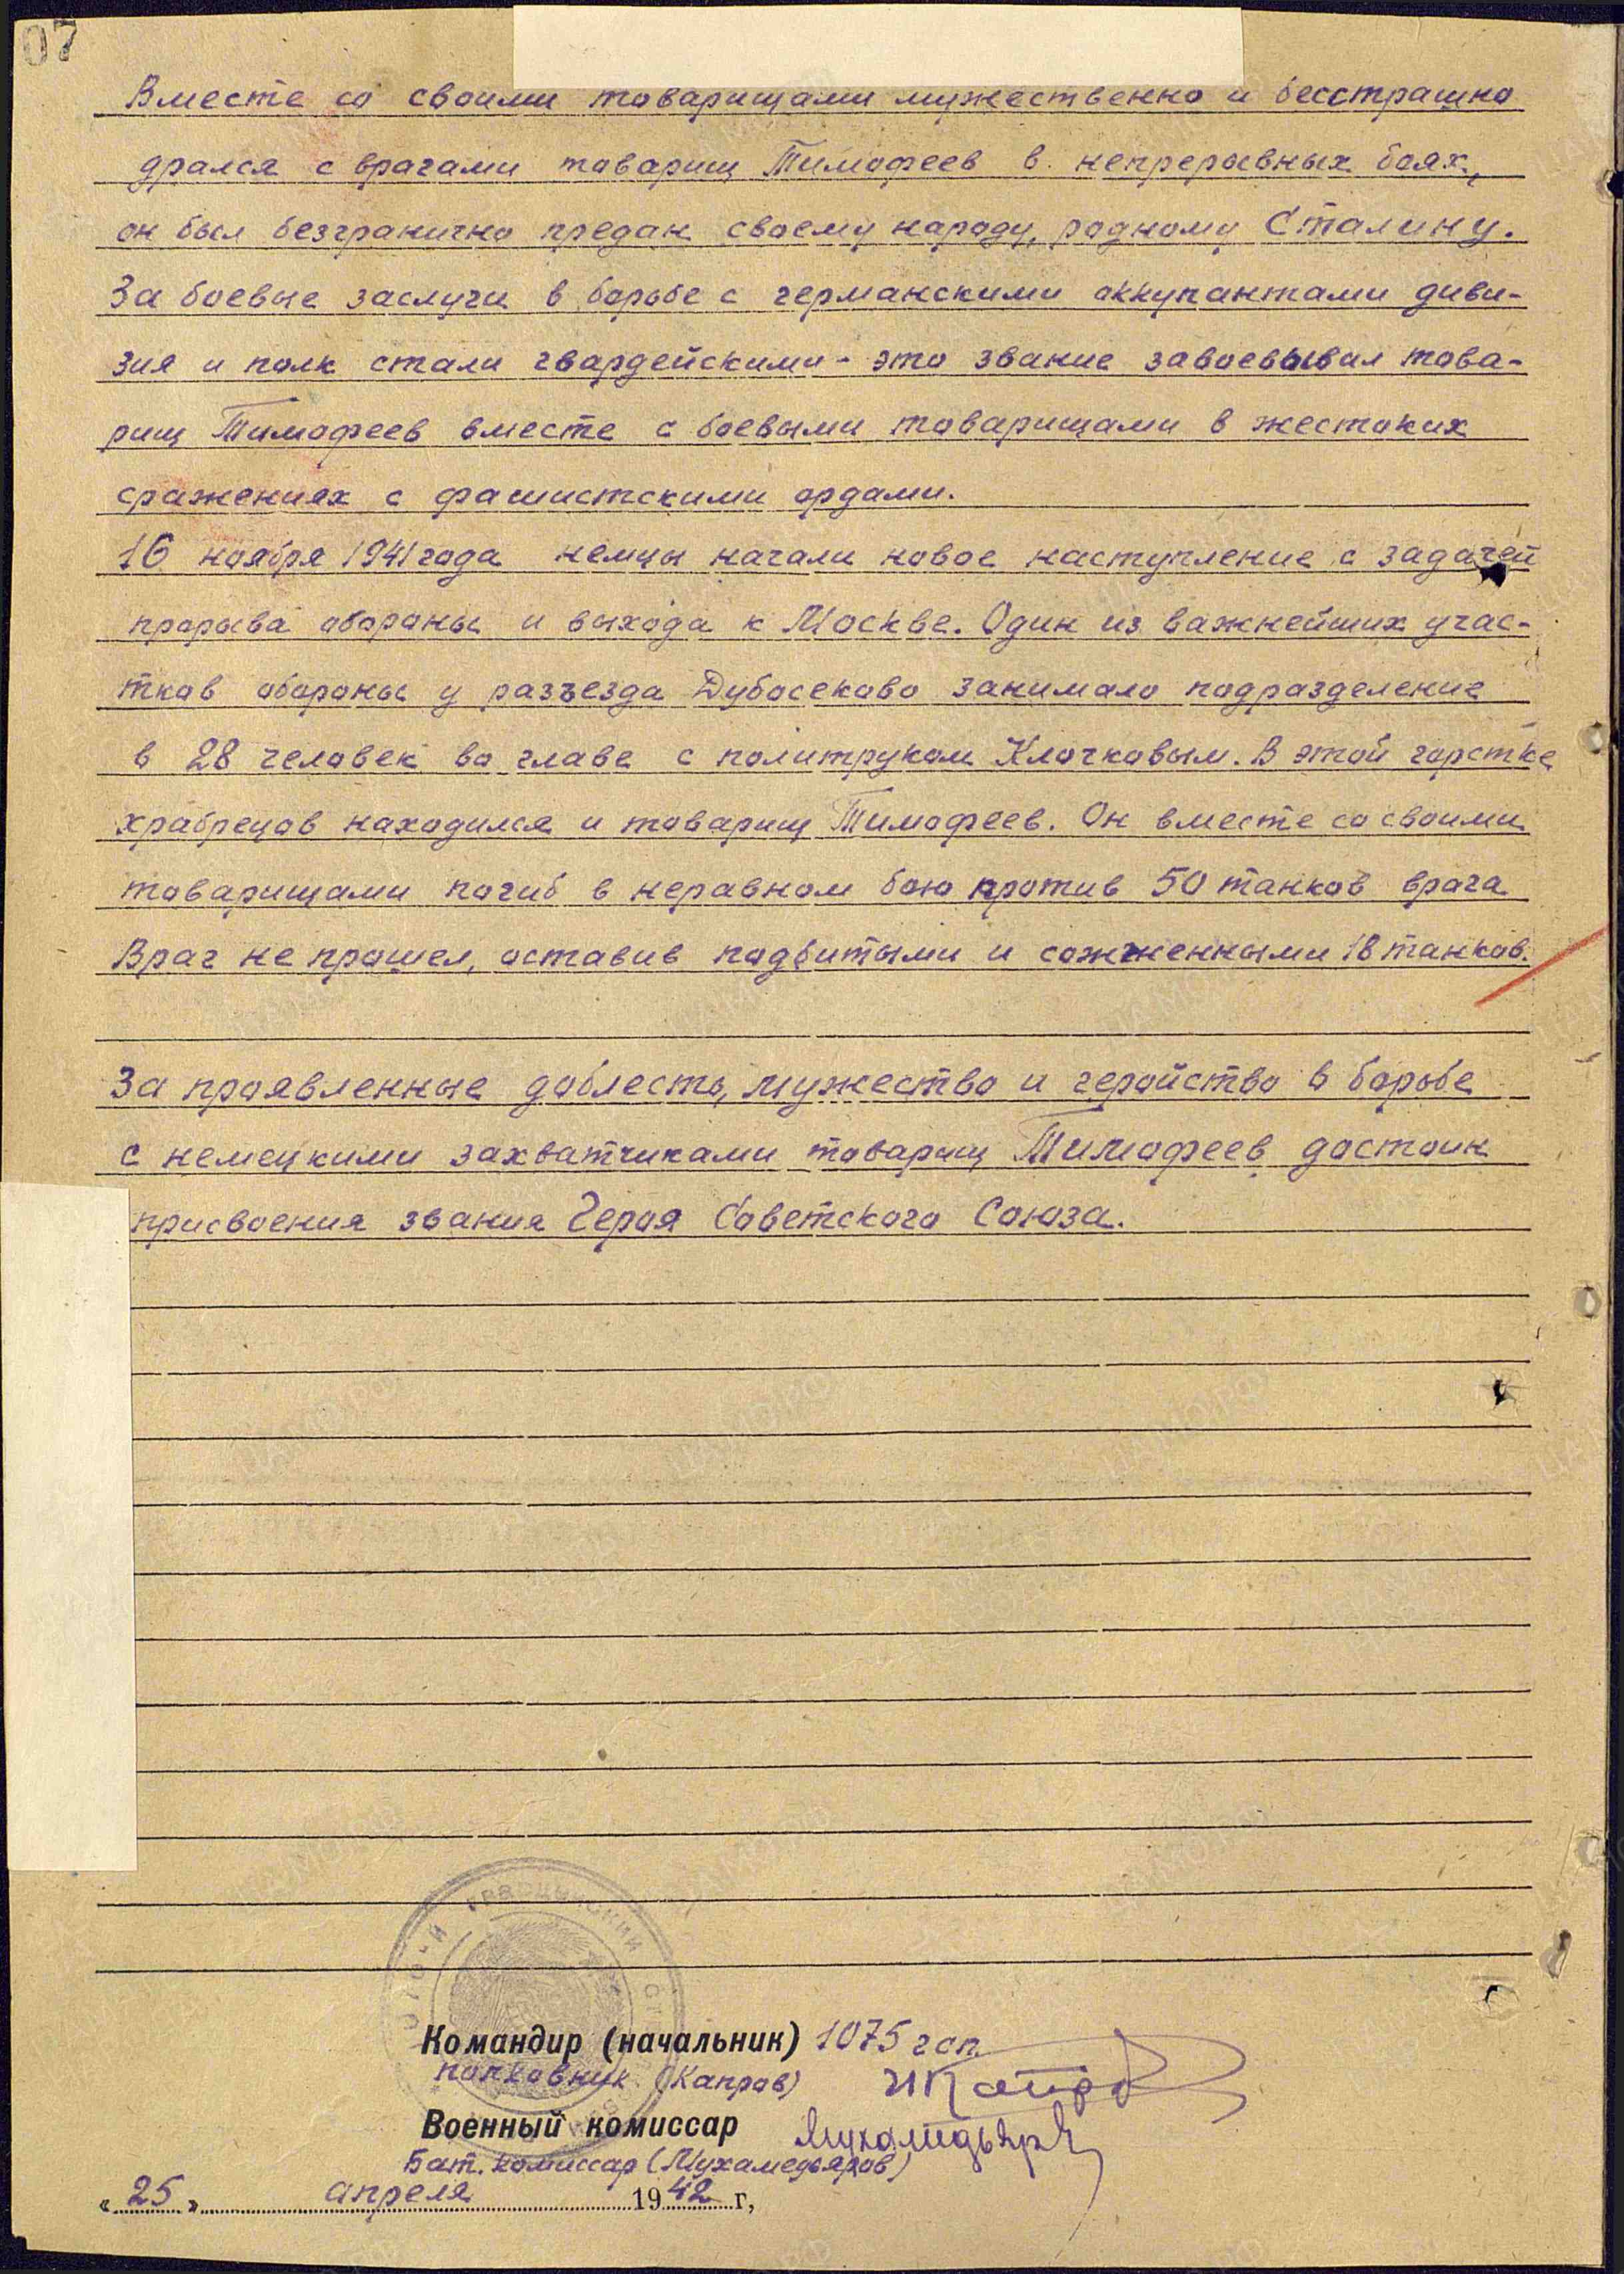 07
Вместе со своими товарищами мужественно и бесстрашно
дрался с врагами товарищ Тимофеев в непрерывных боях,
он был безгранично предан своему народу, родному Сталину.
За боевые заслуги в борьбе с германскими оккупантами диви-
зия и полк стали гвардейскими - это звание завоевывал това-
рищ Тимофеев вместе с боевыми товарищами в жестоких
сражениях с фашистскими ордами.
16 ноября 1941 года немцы начали новое наступление с задачей
прорыва обороны и выхода к Москве. Один из важнейших учас-
тков обороны у разъезда Дубосеково занимало подразделение
в 28 человек во главе с политруком Клочковым. В этой горстке
храбрецов находился и товарищ Тимофеев. Он вместе со своими
товарищами погиб в неравном бою против 50 танков врага
Враг не прошел, оставив подбитыми и сожженными 18 танков.
За проявленные доблесть, мужество и геройство в борьбе
с немецкими захватчиками товарищ Тимофеев достоин
присвоения звания Героя Советского Союза.
Командир (начальник) 1075 гсп.
полковник (Капров) ИКапров
Военный комиссар Мухамедьяров
Бат. комиссар (Мухамедьяров)
«25» апреля 1942 г,